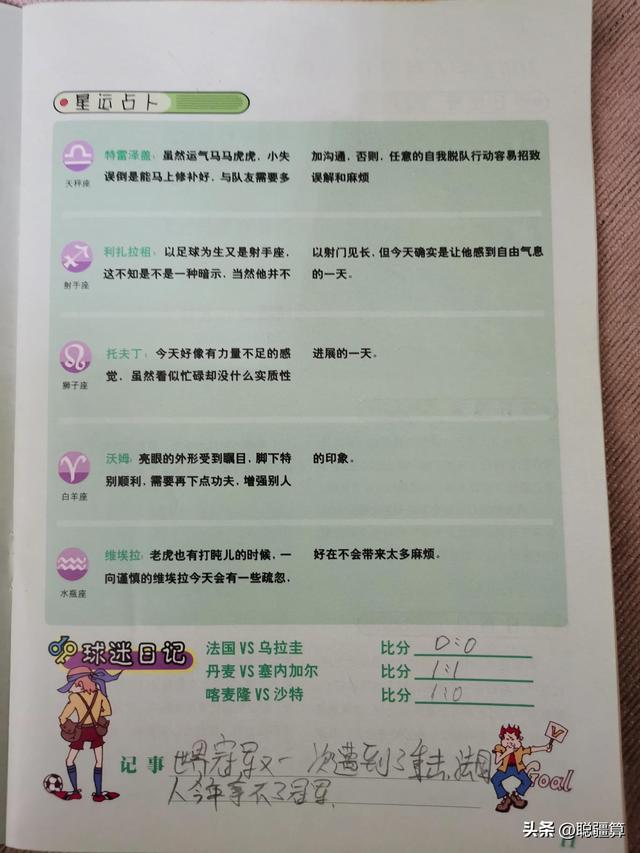 星运占卜
天秤座
特雷泽盖：虽然运气马马虎虎，小失
误倒是能马上修补好，与队友需要多
加沟通，否则，任意的自我脱队行动容易招致
误解和麻烦
射手座
利扎拉祖：以足球为生又是射手座，
这不知是不是一种暗示，当然他并不
以射门见长，但今天确实是让他感到自由气息
的一天。
狮子座
托夫丁：今天好像有力量不足的感
觉，虽然看似忙碌却没什么实质性
进展的一天。
白羊座
沃姆：亮眼的外形受到瞩目，脚下特
别顺利，需要再下点功夫，增强别人
的印象。
水瓶座
维埃拉：老虎也有打盹儿的时候，一
向谨慎的维埃拉今天会有一些疏忽，
好在不会带来太多麻烦。
球迷日记
法国 VS 乌拉圭 比分 0:0
丹麦 VS 塞内加尔 比分 1:1
喀麦隆 VS 沙特 比分 1:0
记事 世界冠军又一次遭到了重击，法国
人今年拿不了冠军
V
Goal
头条 @聪疆算
11